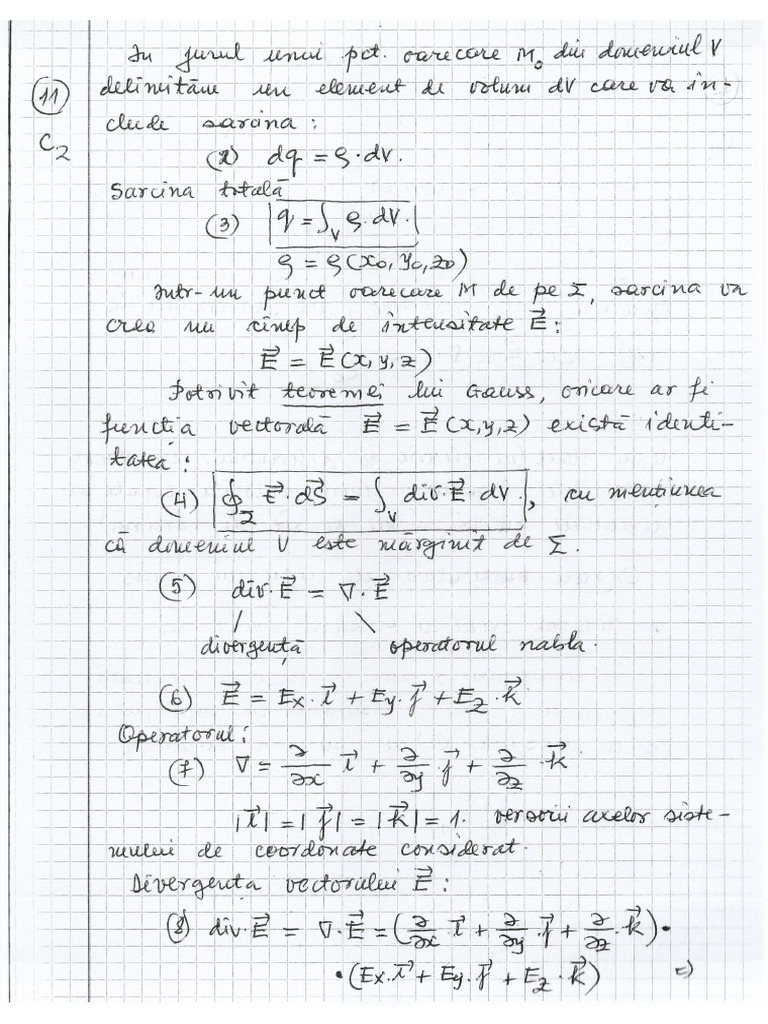 În jurul unui pct. oarecare M₀ din domeniul V
(11) delimităm un element de volum dV care va in-
C₂ clude sarcina:
(2) dq = ρ·dV.
Sarcina totală
(3) q = ∫_V ρ·dV.
ρ = ρ(x₀, y₀, z₀)
Într-un punct oarecare M de pe Σ, sarcina va
crea un cîmp de intensitate E⃗:
E⃗ = E⃗(x, y, z)
Potrivit teoremei lui Gauss, oricare ar fi
funcția vectorală E⃗ = E⃗(x, y, z) există identi-
tatea:
(4) ∮_Σ E⃗·dS⃗ = ∫_V div·E⃗·dV., cu mențiunea
că domeniul V este mărginit de Σ.
(5) div·E⃗ = ∇·E⃗
divergență operatorul nabla.
(6) E⃗ = Ex·i⃗ + Ey·j⃗ + Ez·k⃗
Operatorul:
(7) ∇ = ∂/∂x i⃗ + ∂/∂y·j⃗ + ∂/∂z·k⃗
|i⃗| = |j⃗| = |k⃗| = 1. versorii axelor siste-
mului de coordonate considerat.
Divergența vectorului E⃗:
(8) div·E⃗ = ∇·E⃗ = (∂/∂x i⃗ + ∂/∂y·j⃗ + ∂/∂z·k⃗)·
·(Ex·i⃗ + Ey·j⃗ + Ez·k⃗) =)